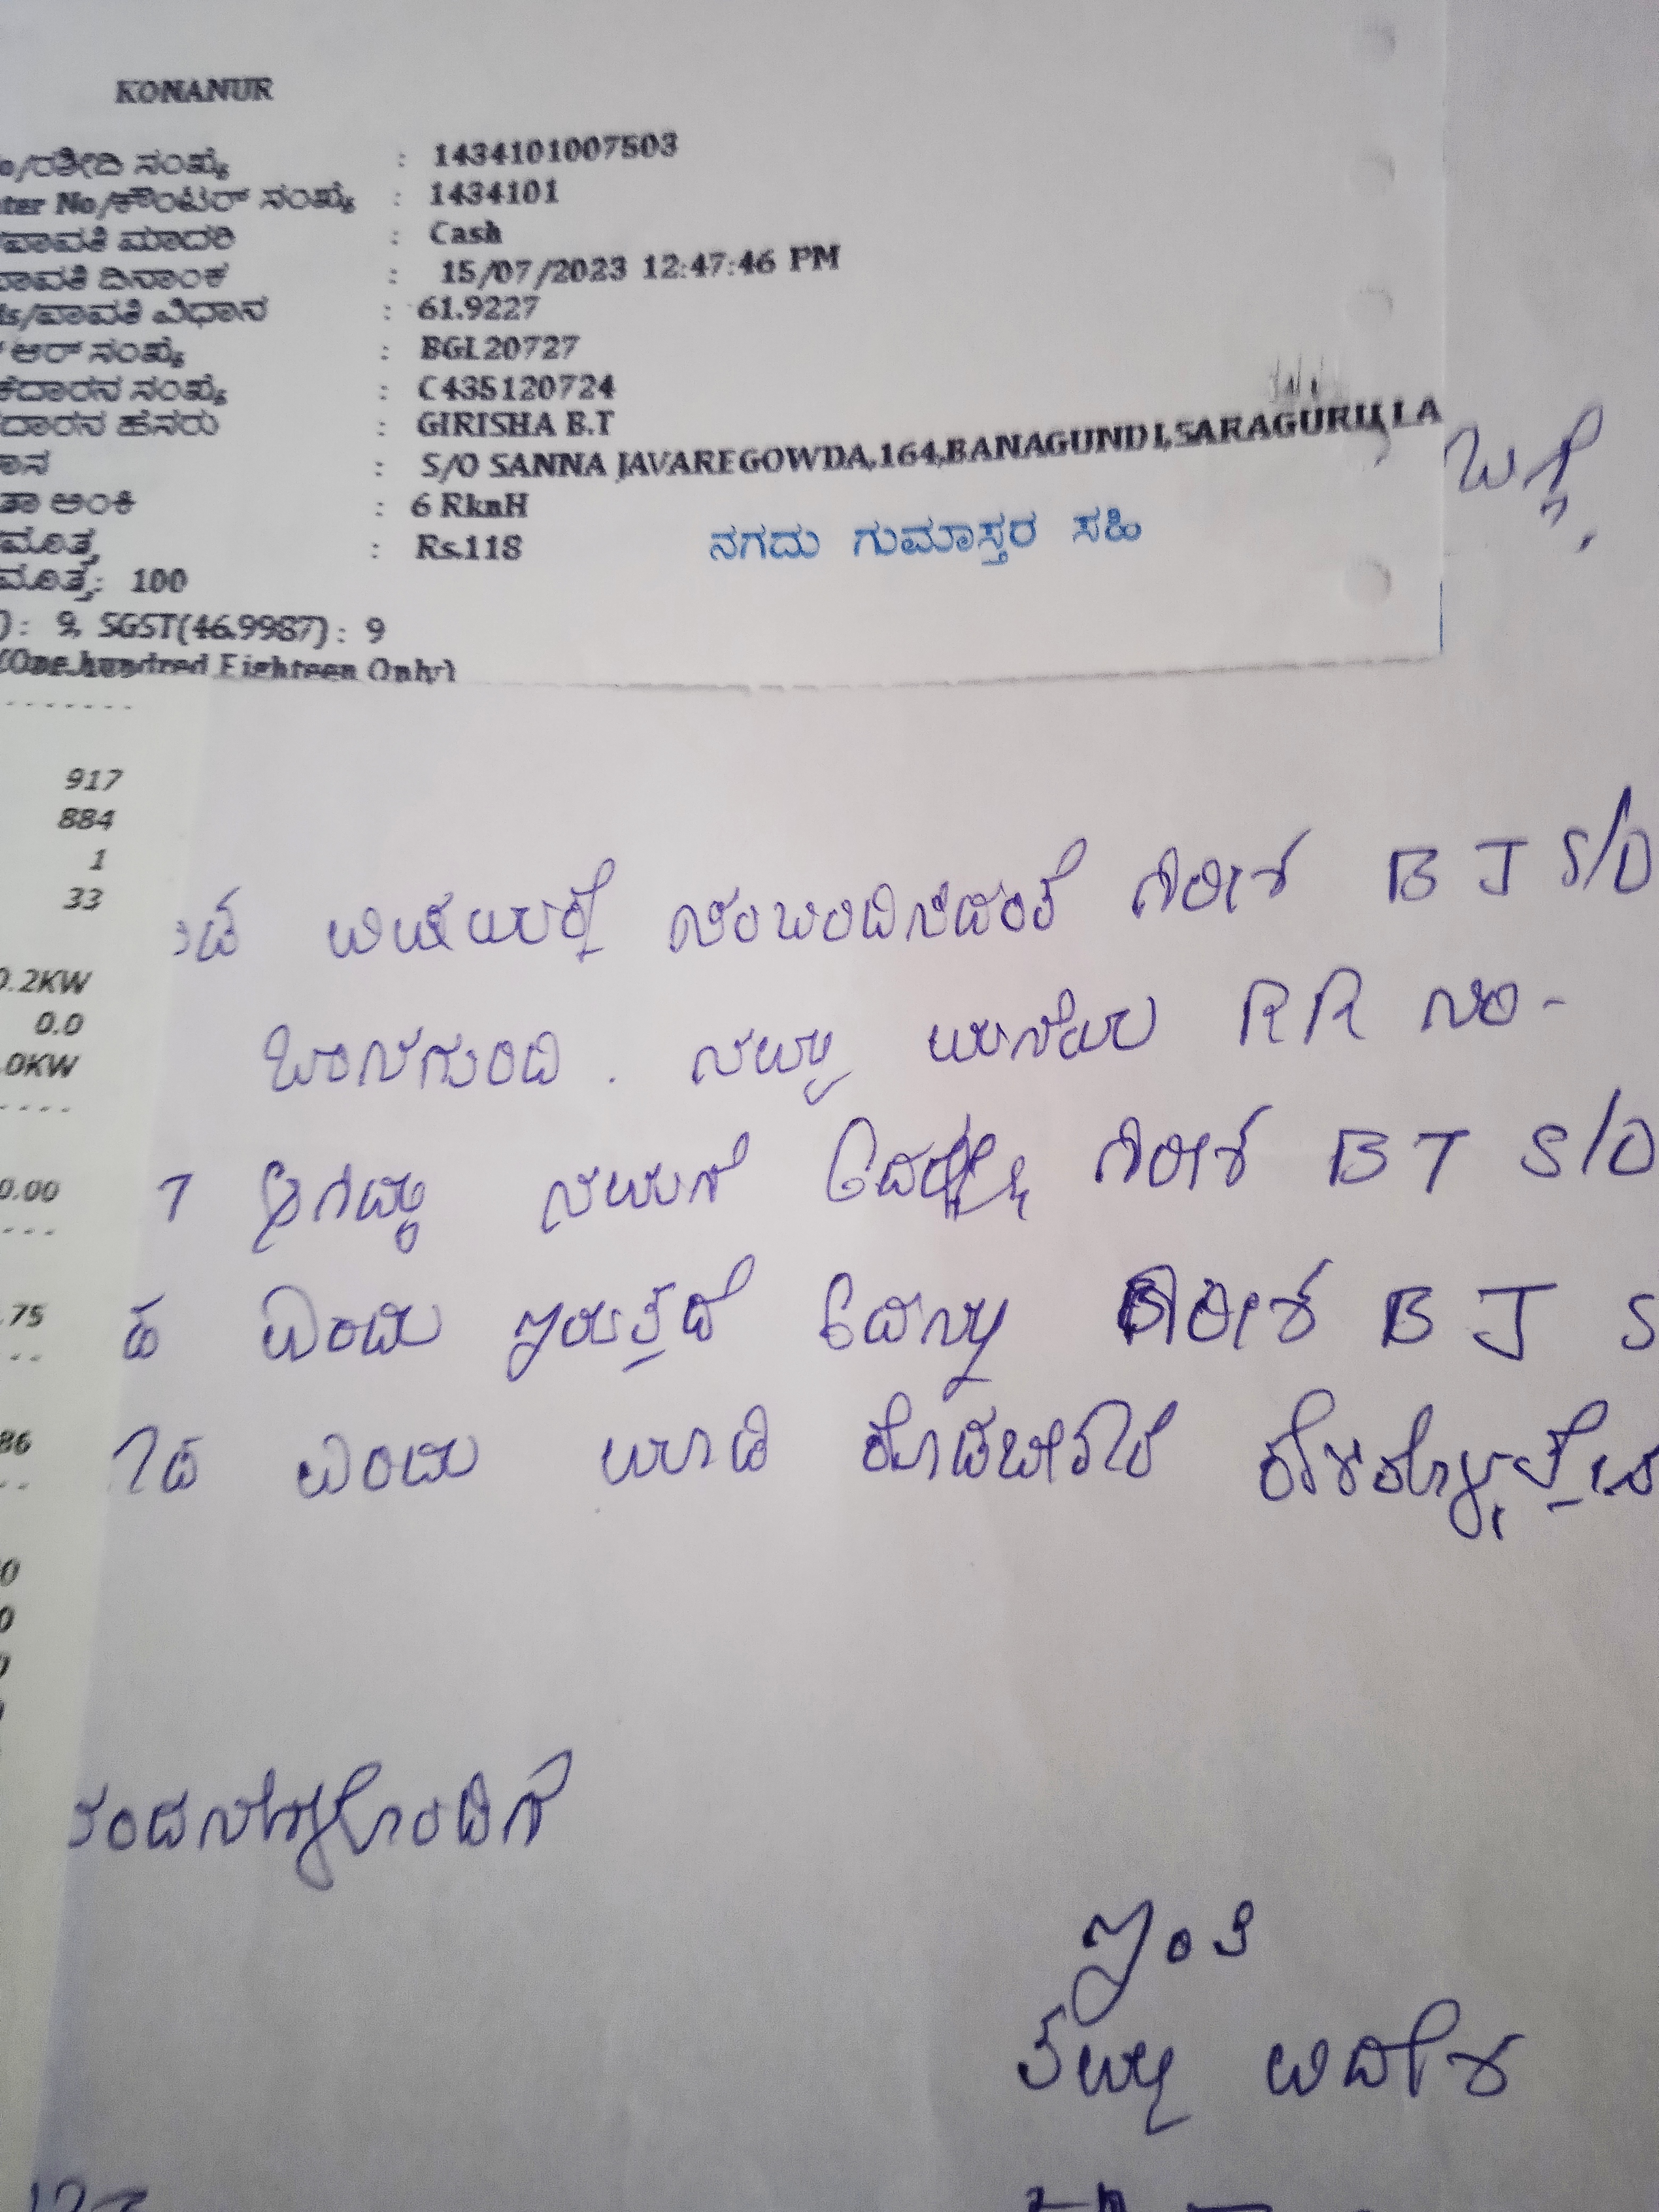 KONANUR
o/ರಶೀದಿ ಸಂಖ್ಯೆ : 1434101007503
nter No/ಕೌಂಟರ್ ಸಂಖ್ಯೆ : 1434101
ಪಾವತಿ ಮಾದರಿ : Cash
ಪಾವತಿ ದಿನಾಂಕ : 15/07/2023 12:47:46 PM
ls/ಪಾವತಿ ವಿಧಾನ : 61.9227
ಆರ್ ಸಂಖ್ಯೆ : BGL20727
ಕೆದಾರನ ಸಂಖ್ಯೆ : C435120724
ದಾರನ ಹೆಸರು : GIRISHA B.T
ಾನ : S/O SANNA JAVAREGOWDA,164,BANAGUNDI,SARAGURU
ತಾ ಅಂಕಿ : 6 RknH
ಮೊತ್ತ : Rs.118
ನಗದು ಗುಮಾಸ್ತರ ಸಹಿ
ಮೊತ್ತ: 100
) : 9, SGST(46.9987) : 9
(One hundred Eighteen Only)
ಬಗ್ಗೆ,
917
884
1
33
0.2KW
0.0
.0KW
0.00
.75
86
ವಿಷಯಕ್ಕೆ ಸಂಬಂದಿಸಿದಂತೆ ಗಿರೀಶ BJ S/O
ಬಾನಗುಂದಿ. ನಮ್ಮ ಮನೆಯ RR ನಂ-
ಆಗಿದ್ದು ನಮಗೆ ಗಿರೀಶ BT S/O
ಎಂದು ಇರುತ್ತದೆ ಇದನ್ನು ಗಿರೀಶ BJ S
ಎಂದು ಮಾಡಿ ಕೊಡಬೇಕಾಗಿ ಕೇಳಿಕೊಳ್ಳುತ್ತೇನೆ
ವಂದನೆಗಳೊಂದಿಗೆ
ಇಂತಿ
ತಮ್ಮ ವಿದೇಯ